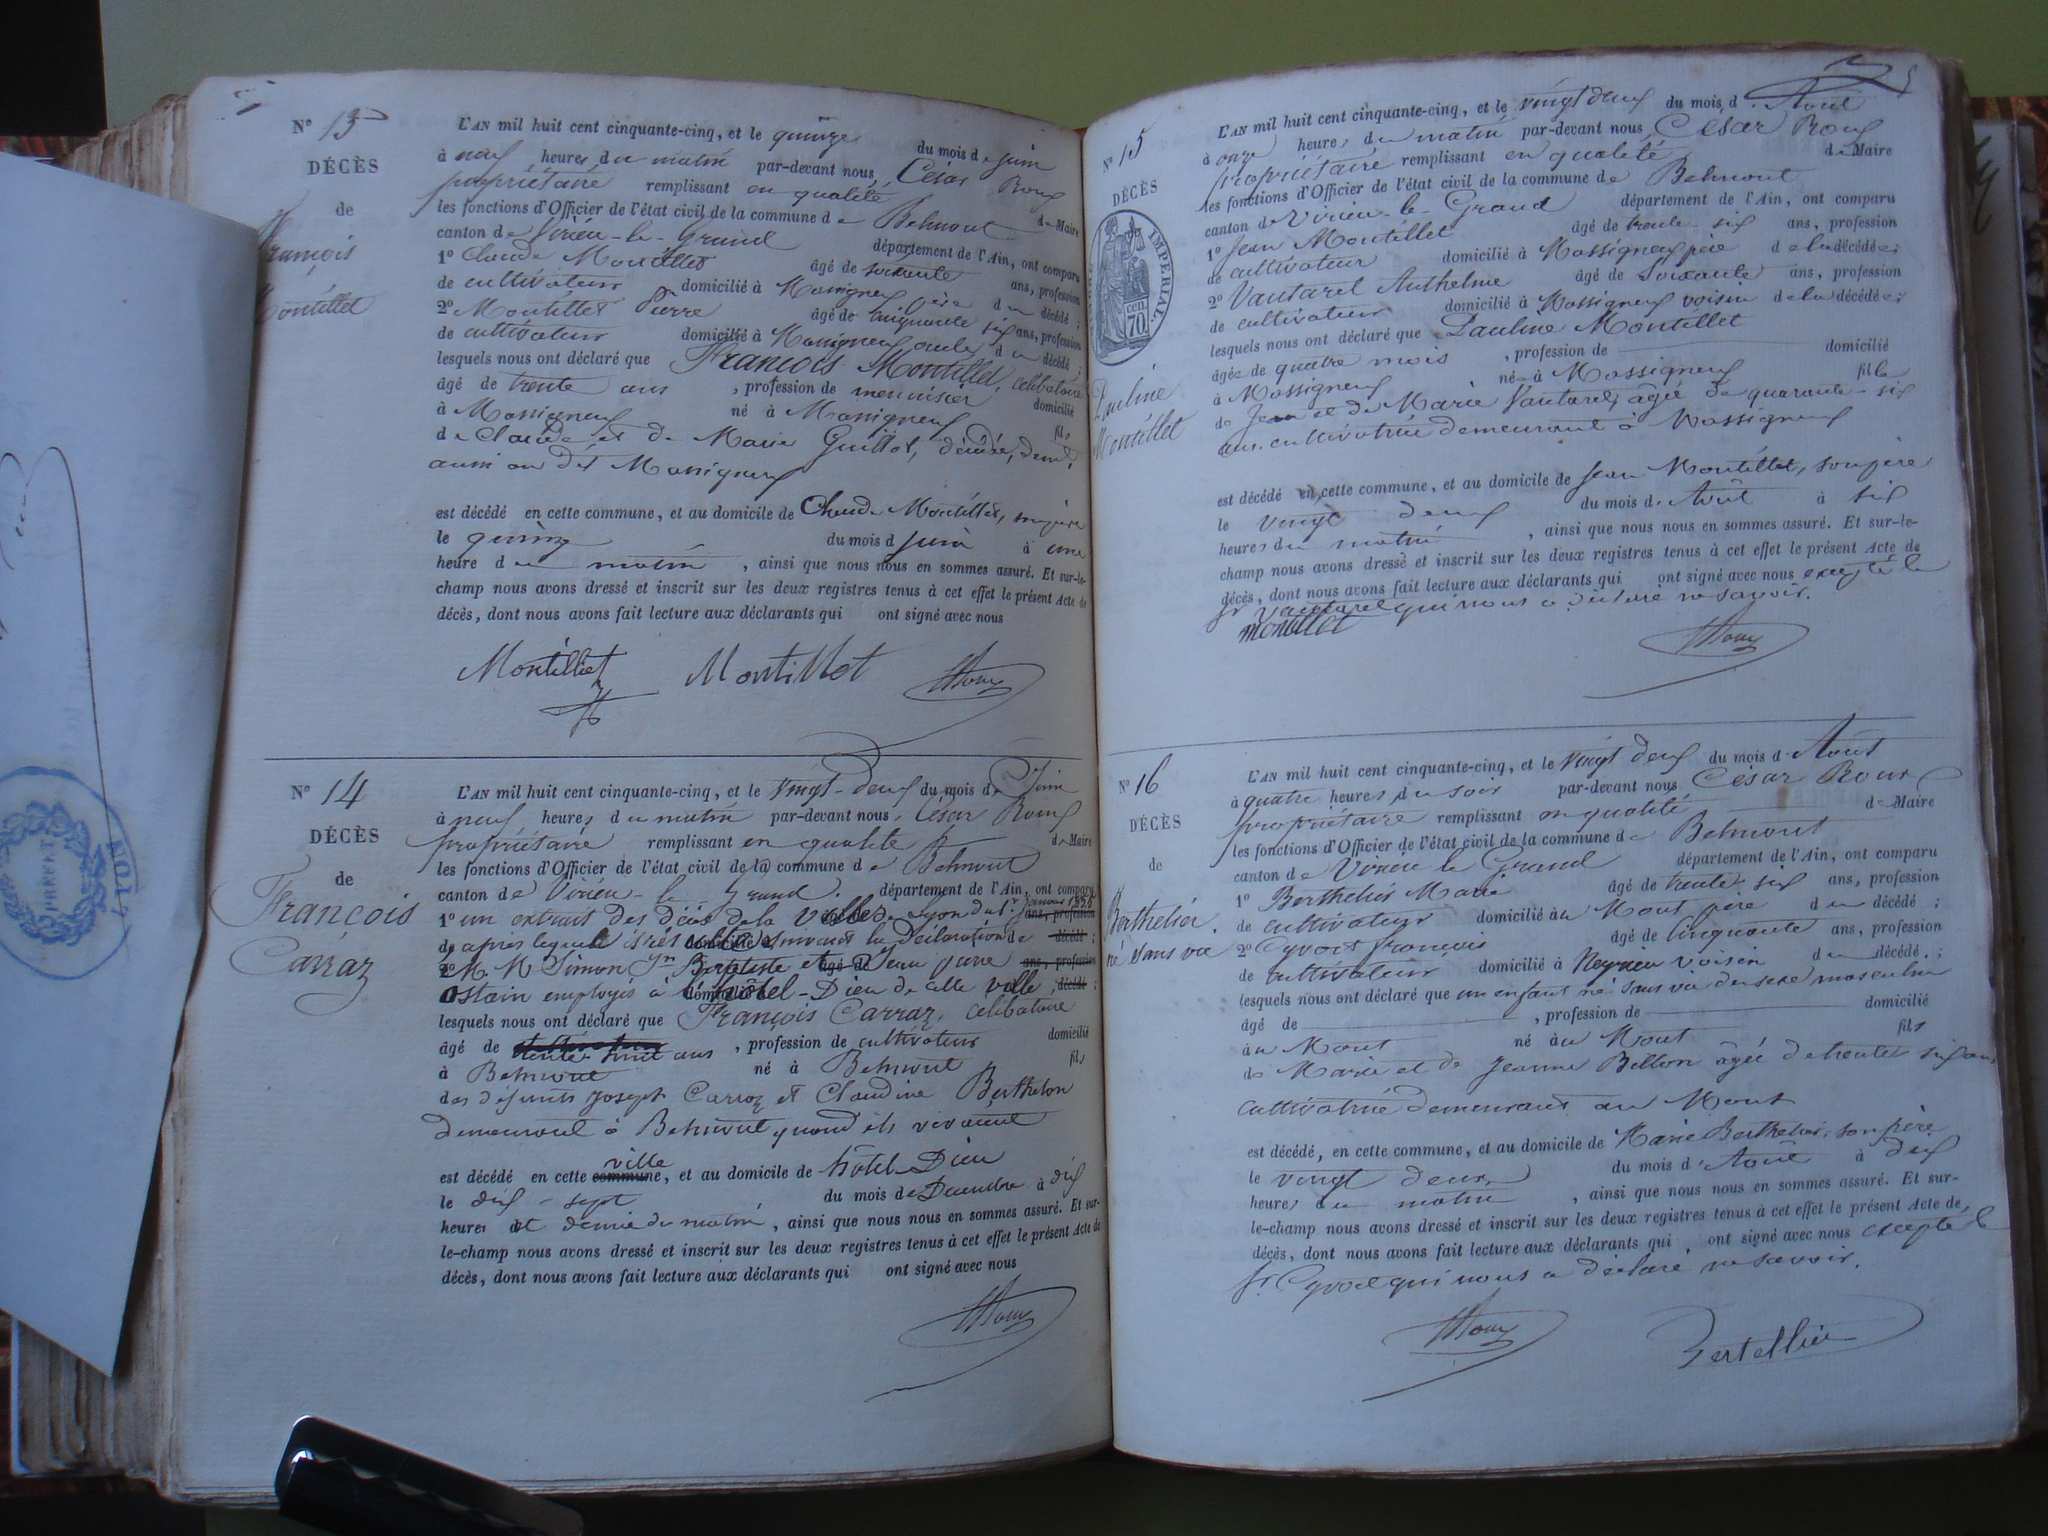 N° 13
DÉCÈS
de
François
Montillet
L'AN mil huit cent cinquante-cinq, et le quinze du mois de juin
à neuf heures du matin par-devant nous César Roux
propriétaire remplissant en qualité de Maire
les fonctions d'Officier de l'état civil de la commune de Belmont
canton de Virieu-le-Grand département de l'Ain, ont comparu
1° Claude Montillet âgé de soixante ans, profession
de cultivateur domicilié à Massigneux père du décédé ;
2° Montillet Pierre âgé de cinquante six ans, profession
de cultivateur domicilié à Massigneux oncle du décédé ;
lesquels nous ont déclaré que François Montillet, célibataire
âgé de trente ans , profession de menuisier domicilié
à Massigneux né à Massigneux fils
de Claude et de Marie Guillot, décédée, demt
aussi au dit Massigneux
est décédé en cette commune, et au domicile de Claude Montillet, son père
le quinze du mois d juin à une
heure du matin , ainsi que nous nous en sommes assuré. Et sur-le-
champ nous avons dressé et inscrit sur les deux registres tenus à cet effet le présent Acte de
décès, dont nous avons fait lecture aux déclarants qui ont signé avec nous
Montilliet Montillet Roux
N° 14
DÉCÈS
de
François
Carraz
L'AN mil huit cent cinquante-cinq, et le vingt-deux du mois de Juin
à neuf heures du matin par-devant nous, César Roux
propriétaire remplissant en qualité de Maire
les fonctions d'Officier de l'état civil de la commune de Belmont
canton de Virieu-le-Grand. département de l'Ain, ont comparu
1° un extrait des décès de la Ville de Lyon du 1er Janvier 1855 ans, profession
d'après lequel il résulte suivant la déclaration de décédé ;
2° M. M. Simon Jn Baptiste et Jean ans, profession
Ostain employés à l'hôtel-Dieu de cette ville, décédé ;
lesquels nous ont déclaré que François Carraz, célibataire
âgé de ans , profession de cultivateur domicilié
à Belmont né à Belmont fils
des défunts Joseph Carraz et Claudine Berthelon
demeurant à Belmont quand ils vivaient
est décédé en cette commune ville, et au domicile de hôtel-Dieu
le dix-sept du mois de Décembre à dix
heures et demie du matin, ainsi que nous nous en sommes assuré. Et sur-
le-champ nous avons dressé et inscrit sur les deux registres tenus à cet effet le présent Acte de
décès, dont nous avons fait lecture aux déclarants qui ont signé avec nous
Roux
N° 15
DÉCÈS
IMPÉRIAL.
70 CEN.
Pauline
Montillet
L'AN mil huit cent cinquante-cinq, et le vingt deux du mois d'Août
à onze heures du matin par-devant nous César Roux
propriétaire remplissant en qualité de Maire
les fonctions d'Officier de l'état civil de la commune de Belmont
canton de Virieu-le-Grand département de l'Ain, ont comparu
1° Jean Montillet âgé de trente-six ans, profession
de cultivateur domicilié à Massigneux père de la décédée;
2° Vautarel Anthelme âgé de Soixante ans, profession
de cultivateur domicilié à Massigneux voisin de la décédée;
lesquels nous ont déclaré que Pauline Montillet
âgée de quatre mois , profession de domicilié
à Massigneux née à Massigneux fille
de Jean et de Marie Vautarel, agée de quarante-six
ans, cultivatrice demeurant à Massigneux
est décédé en cette commune, et au domicile de Jean Montillet, son père
le vingt deux du mois d'Août à six
heures du matin , ainsi que nous nous en sommes assuré. Et sur-le-
champ nous avons dressé et inscrit sur les deux registres tenus à cet effet le présent Acte de
décès, dont nous avons fait lecture aux déclarants qui ont signé avec nous excepté le
Sr Vautarel qui nous a déclaré ne savoir.
montillet Roux
N° 16
DÉCÈS
de
Berthelier.
né sans vie
L'AN mil huit cent cinquante-cinq, et le vingt deux du mois d'Août
à quatre heures du soir par-devant nous César Roux
propriétaire remplissant en qualité de Maire
les fonctions d'Officier de l'état civil de la commune de Belmont
canton de Virieu le Grand département de l'Ain, ont comparu
1° Berthelier Marie âgé de trente six ans, profession
de cultivateur domicilié au Mont père du décédé ;
2° Cyvoct françois âgé de Cinquante ans, profession
de cultivateur domicilié à Neyrieu voisin du décédé. ;
lesquels nous ont déclaré que un enfant né sans vie du sexe masculin
âgé de , profession de domicilié
au Mont né au Mont fils
de Marie et de Jeanne Billion âgée de trente six ans
cultivatrice demeurant au Mont
est décédé, en cette commune, et au domicile de Marie Berthelier, son père
le vingt deux du mois d'Août à dix
heures du matin , ainsi que nous nous en sommes assuré. Et sur-
le-champ nous avons dressé et inscrit sur les deux registres tenus à cet effet le présent Acte de
décès, dont nous avons fait lecture aux déclarants qui ont signé avec nous excepté le
Sr. Cyvoct qui nous a déclaré ne savoir.
Roux Bertellier